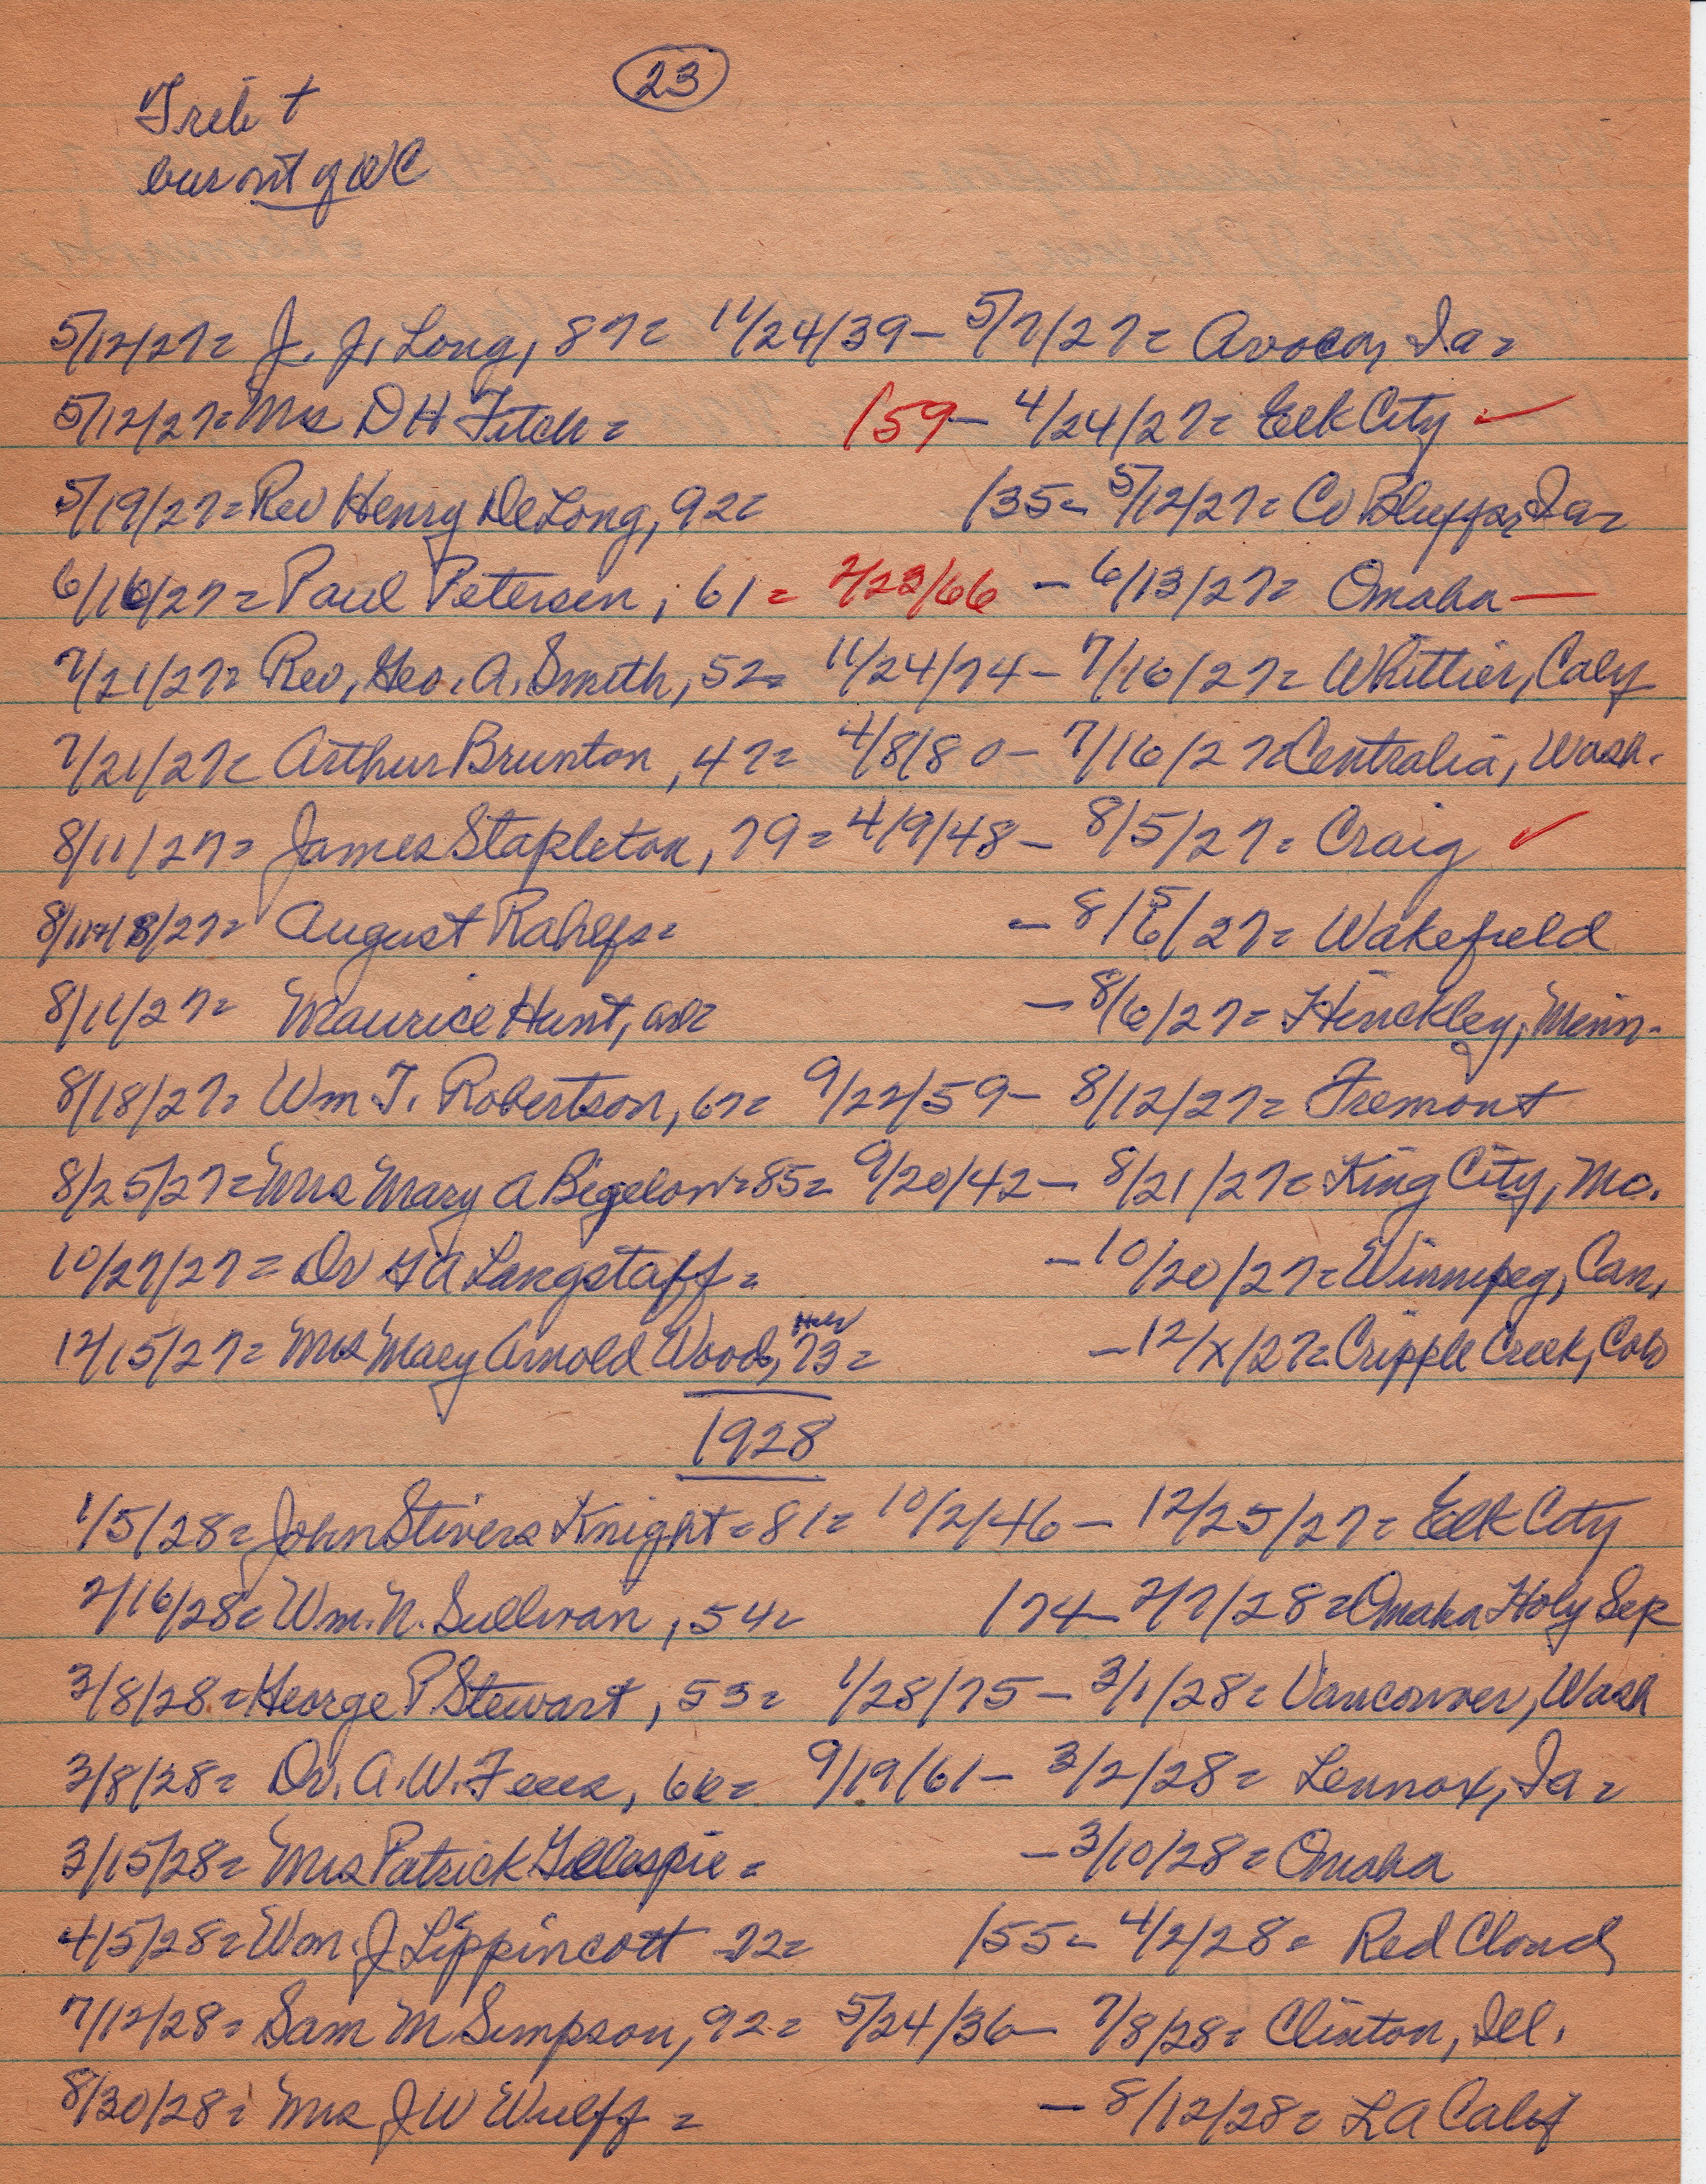 23
Trib +
bur out of WC
5/12/27= J. J. Long, 87= 11/24/39- 5/7/27= Avoca, Ia=
5/12/27= Mrs D H Fitch= /59- 4/24/27= Elk City ✓
5/19/27= Rev Henry DeLong, 92= /35- 5/12/27= Co Bluffs, Ia=
6/16/27= Paul Petersen, 61= 2/23/66 - 6/13/27= Omaha —
7/21/27= Rev. Geo. A. Smith, 52= 11/24/74- 7/16/27= Whittier, Calif
7/21/27= Arthur Brunton, 47= 4/8/80- 7/16/27= Centralia, Wash.
8/11/27= James Stapleton, 79= 4/9/48- 8/5/27= Craig ✓
8/11+18/27= August Rahlfs= - 8/5/6/27= Wakefield
8/11/27= Maurice Hunt, = - 8/6/27= Hinckley, Minn.
8/18/27= Wm T. Robertson, 67= 9/22/59- 8/12/27= Fremont
8/25/27= Mrs Mary A Bigelow=85= 9/20/42- 8/21/27= King City, Mo.
10/27/27= Dr GA Langstaff= -10/20/27= Winnipeg, Can.
12/15/27= Mrs Mary Arnold Wood, 73= -12/x/27= Cripple Creek, Colo
1928
1/5/28= John Stivers Knight=81= 10/2/46- 12/25/27= Elk City
2/16/28= Wm. N. Sullivan, 54= /74- 2/7/28= Omaha Holy Sep
3/8/28= George P Stewart, 53= 1/28/75- 3/1/28= Vancouver, Wash
3/8/28= Dr. A. W. 66= 9/19/61- 3/2/28= Lennox, Ia=
3/15/28= Mrs Patrick Gillespie= -3/10/28= Omaha
4/5/28= Wm. J Lippincott 72= /55- 4/2/28= Red Cloud
7/12/28= Sam M Simpson, 92= 5/24/36- 7/8/28= Clinton, Ill.
8/30/28= Mrs J W Wulff= - 8/12/28= LA Calif